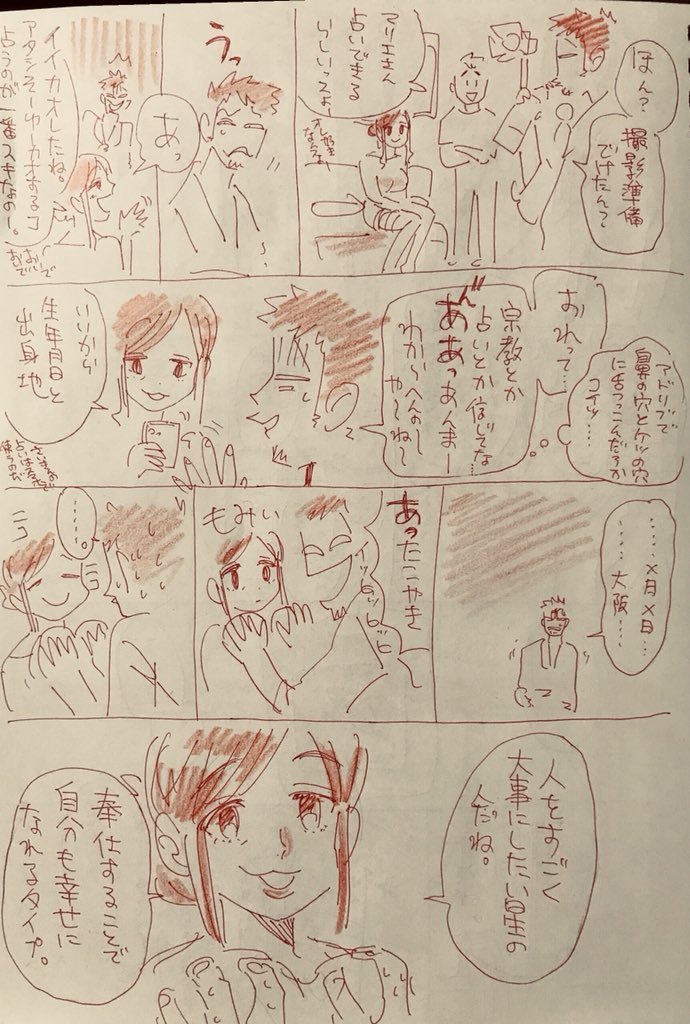 ほん?
撮影準備
でけたん?
アリエさん
占いできる
らしいっスよ
うっ
あっ
イイカオしたね。
アタシそーゆーカオするコ
占うのが一番スキなの〜。
おいで
おいで
アドリブで
鼻の穴とケツの穴
に舌つっこんだろか
コイツ…
おれって…
宗教とか
占いとか信じてな…
あんまー
わからへんのー
や〜ね〜
いいから
生年月日と
出身地
……×月×日…
……大阪……
あったこやき
もみぃ
……。
ニコ
人をすごく
大事にしたい星の
人だね。
奉仕することで
自分も幸せに
なれるタイプ。